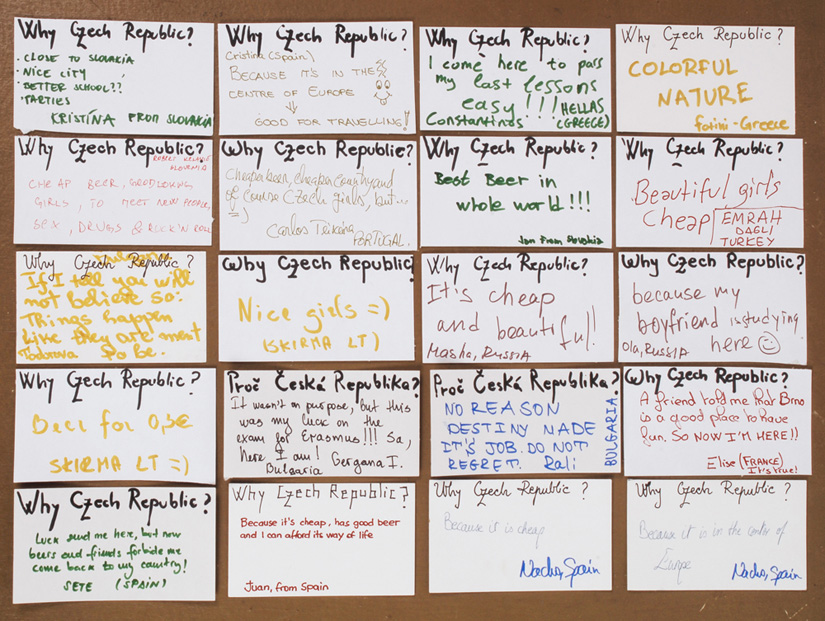 Why Czech Republic?
· CLOSE TO SLOVAKIA
· NICE CITY
· BETTER SCHOOL??
· PARTIES
KRISTÍNA FROM SLOVAKIA
Why Czech Republic?
Cristina (Spain)
BECAUSE IT'S IN THE
CENTRE OF EUROPE
GOOD FOR TRAVELLING!
Why Czech Republic?
I come here to pass
my last lessons
easy!!! HELLAS
Constantinos (GREECE)
Why Czech Republic?
COLORFUL
NATURE
fotini - Greece
Why Czech Republic?
SLOVENIA
CHEAP BEER, GOODLOOKING
GIRLS, TO MEET NEW PEOPLE,
SEX, DRUGS & ROCK'N ROLL
Why Czech Republic?
Cheaper beer, cheaper country and
of course Czech girls, but...
=)
Carlos Teixeira
PORTUGAL.
Why Czech Republic?
Best Beer in
whole world!!!
Jan From Slovakia
Why Czech Republic?
Beautiful girls
Cheap
EMRAH
DAGLI
TURKEY
Why Czech Republic?
If I tell you will
not believe so:
Things happen
like they are ment
Todorova to be.
Why Czech Republic?
Nice girls =)
(SKIRMA LT)
Why Czech Republic?
It's cheap
and beautiful!
Masha, RUSSIA
Why Czech Republic?
because my
boyfriend is studying
here
Ola, RUSSIA
Why Czech Republic?
Beer for 0,5€
SKIRMA LT =)
Proč Česká Republika?
It wasn't on purpose, but this
was my luck on the
exam for Erasmus!!! So,
here I am! Gergana I.
Bulgaria
Proč Česká Republika?
NO REASON
DESTINY MADE
IT'S JOB. DO NOT
REGRET. Rali
BULGARIA
Why Czech Republic?
A friend told me that Brno
is a good place to have
fun. So NOW I'M HERE!!
Elise (FRANCE)
It's true!
Why Czech Republic?
Luck send me here, but now
beers and friends forbide me
come back to my country!
SETE (SPAIN)
Why Czech Republic?
Because it's cheap, has good beer
and I can afford its way of life
Juan, from Spain
Why Czech Republic?
Because it is cheap
Nacho, Spain
Why Czech Republic?
Because it is in the center of
Europe
Nacho, Spain